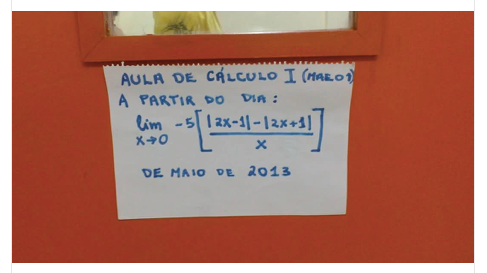 AULA DE CÁLCULO I (MAE01)
A PARTIR DO DIA:
lim x→0 -5[(|2x-1|-|2x+1|)/x]
DE MAIO DE 2013